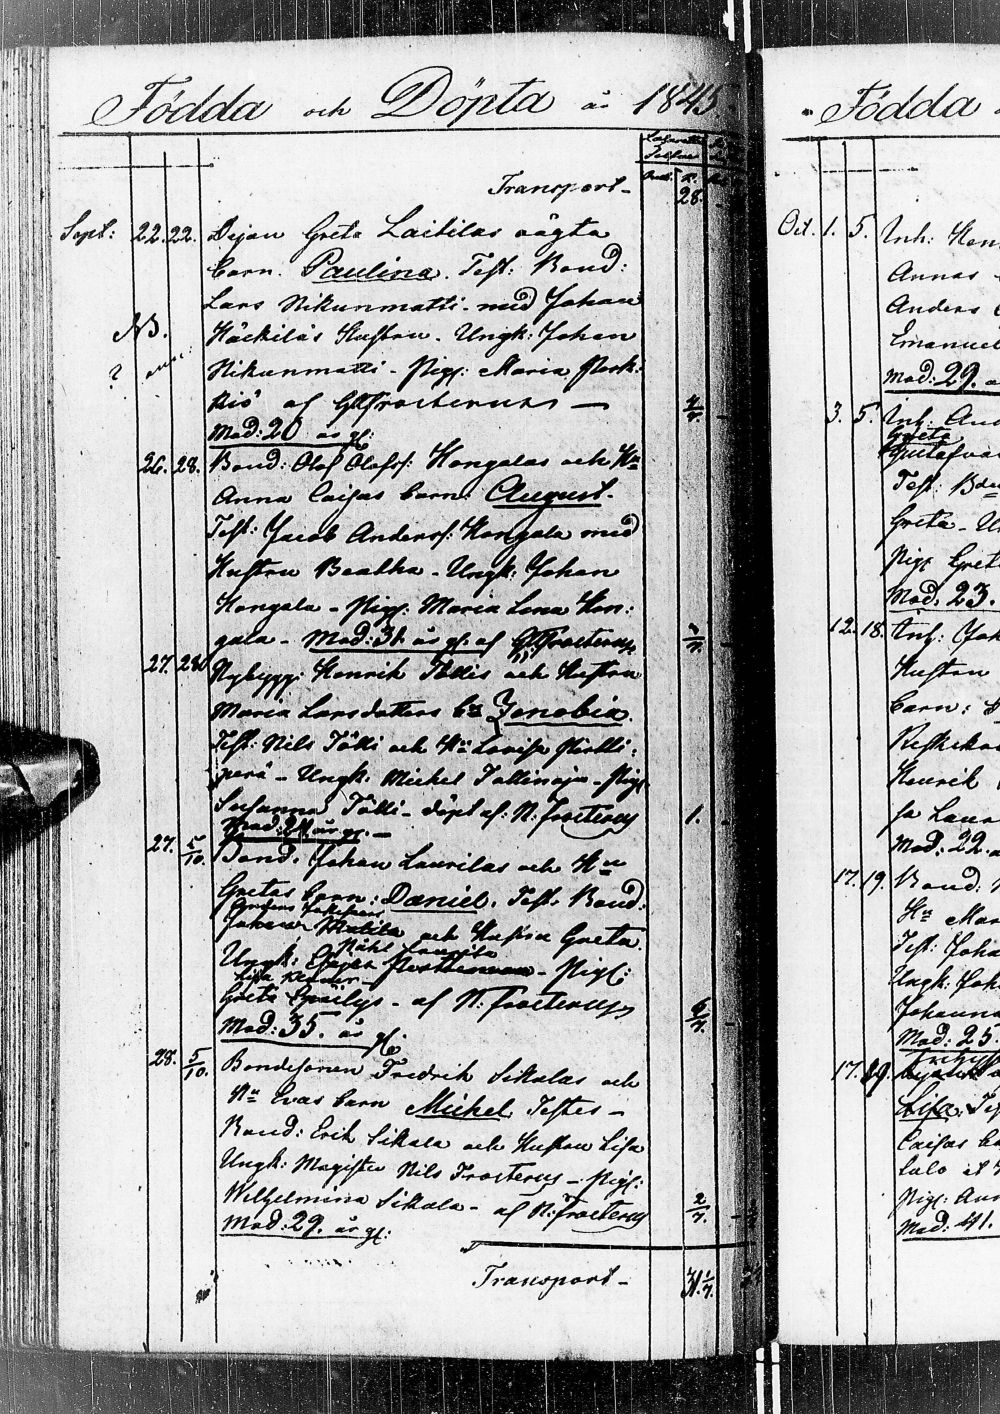 Födda och Döpta år 1845.
Transport - 28.
Sept: 22. 22. Dejan Greta Laitilas oägta
barn. Paulina. Test: Bond:
Lars Nikunmatti - med Johan
NB. Häckiläs Hustru. Ungk: Johan
? Nikunmatti - Pig: Maria
af G Frosterus —
Mod: 20 år gl:
26. 28. Bond: Olof Olofss: Hongalas och Hu
Anna Caisas barn: August.
Test: Jacob Anderss: Hongala med
Hustru Beatha - Ungk: Johan
Hongala - Pig: Maria Lena Hon:
gala - Mod: 31 år gl. af G Frosterus
27. 28. Nybygg: Henrik Töllis och Hustru
Maria Larsdotters bn Zenobia.
Test: Nils Tölli och Hu Lovisa
perä - Ungk: Michel - Pig:
Susanna Tölli - döpt af: N: Frosterus 1.
Mod: 24 år gl. -
27. 5/10. Bond. Johan Laurilas och Hu
Gretas barn: Daniel. Test. Bond:
Johan Mattila och Hustru Greta.
Ungk: - Pig:
Greta - af N: Frosterus
Mod: 35. år gl.
28. 5/10. Bondesonen Fredrik Sikalas och
Hu Evas barn Michel Testes -
Bond: Erik Sikala och Hustru Lisa
Ungk: Magister Nils Frosterus - Pig:
Wilhelmina Sikala - af N: Frosterus 2/7.
Mod: 29. år gl:
Transport - 31 1/7.
Födda
Oct. 1. 5. Inh: Hen
Annas
Anders
Emanuel
Mod: 29.
3. 5. Inh: And
Greta
Gustafva
Test: Bden
Greta - U
Pig: Gret
Mod. 23.
12. 18. Inh: Joh
Hustru
barn:
Henrik
sa Laur
Mod: 22.
17. 19. Bond:
Hu Mar
Test: Joha
Ungk: Joh
Johanna
Mod: 25.
17. 29.
Lisa. Te
Caisas ba
Pig: An
Mod: 41.